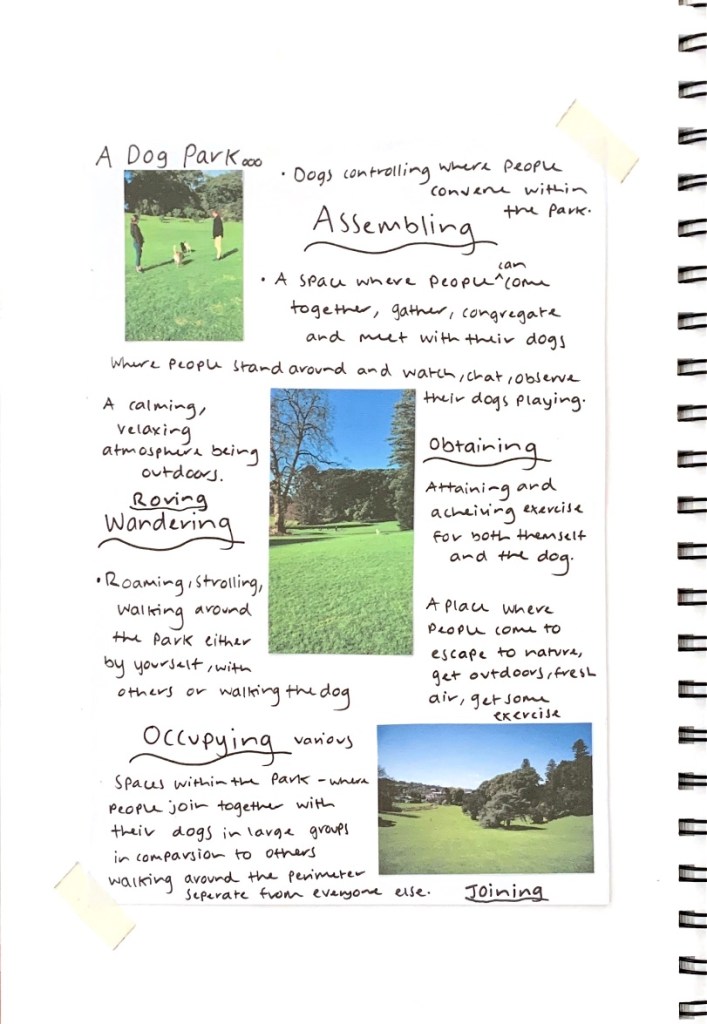 A Dog Park...
• Dogs controlling where people
convene within
the park.
Assembling
• A space where people can come
together, gather, congregate
and meet with their dogs
where people stand around and watch, chat, observe
their dogs playing.
A calming,
relaxing
atmosphere being
outdoors.
Roving
Wandering
• Roaming, strolling,
walking around
the park either
by yourself, with
others or walking the dog
Obtaining
Attaining and
acheiving exercise
for both themself
and the dog.
A place where
people come to
escape to nature,
get outdoors, fresh
air, get some
exercise
Occupying various
spaces within the park - where
people join together with
their dogs in large groups
in comparsion to others
walking around the perimeter
seperate from everyone else.
Joining